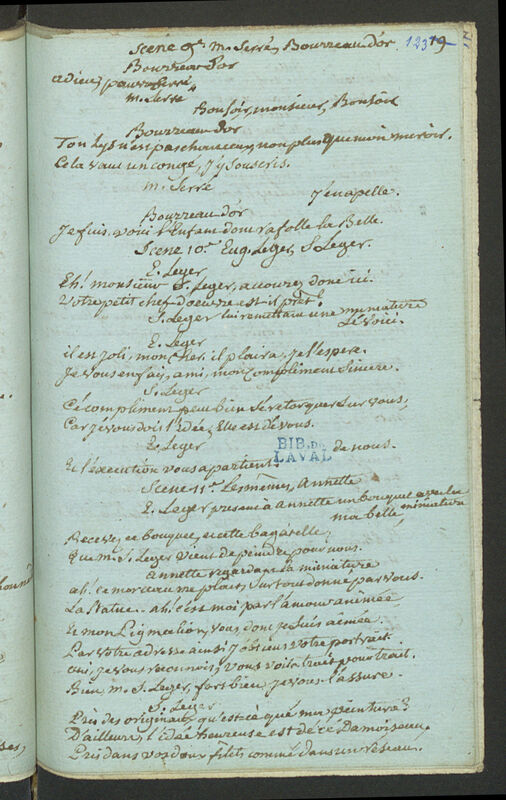 Scene 9e. m. Serré, Bourreau d'or. 123 19
Bourreau d'or
adieu, pauvre Serré
m. Serré
Bonsoir, monsieur, Bonsoir
Bourreau d'or
Ton lys n'est pas chanceux, non plus que mon miroir.
Cela vaut un congé, j'y souscris.
m. Serré
J'en apelle.
Bourreau d'or
Je fuis. voici l'Enfant dont rafolle la Belle.
Scene 10e. Eug. Leger, S. Leger.
E. Leger
Eh! monsieur S. Leger, accourez donc ici.
Votre petit chef d'oeuvre est il prêt?
S. Leger lui remettant une miniature
Le voici.
E. Leger
il est joli, mon cher. il plaira, je l'espere.
Je vous en fais, ami, mon compliment sincere.
S. Leger
Ce compliment peut bien se retorquer sur vous,
Car je vous dois l'idée, Elle est de vous.
E. Leger
de nous.
BIB. DE LAVAL
Et l'execution vous apartient.
Scene 11e. Les mêmes, Annette
E. Leger presente à annette un bouquet avec la miniature
ma belle
Recevez ce bouquet, et cette bagatelle,
Que m. S. Leger vient de peindre pour vous.
annette regardant la miniature
ah. ce morceau me plait, surtout donné par vous.
La Statue. ah. c'est moi par l'amour animée
Et mon Pigmalion, vous, dont je suis aimée.
Par votre adresse ainsi j'obtiens votre portrait
oui, je vous reconnois, vous voila trait pour trait.
Bien m. S. Leger, fort bien, je vous l'assure.
S. Leger
Près des originaux, qu'est-ce que ma peinture?
D'ailleurs, l'idée heureuse est de ce Damoiseau,
Pris dans vos doux filets comme dans un réseau.